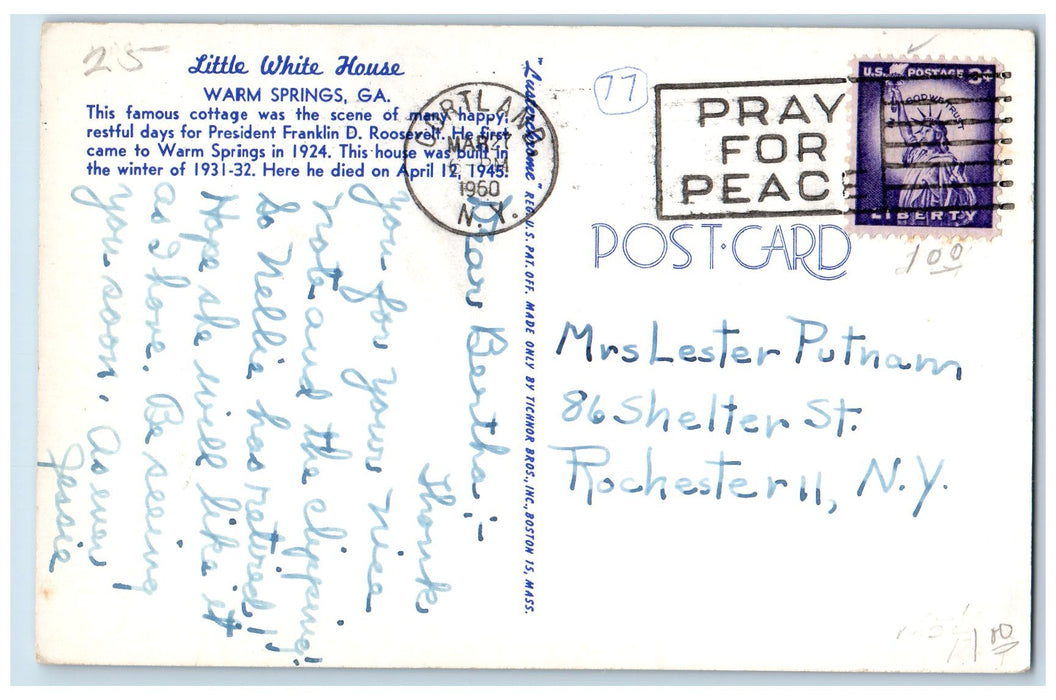 25
Little White House
WARM SPRINGS, GA.
This famous cottage was the scene of many happy,
restful days for President Franklin D. Roosevelt. He first
came to Warm Springs in 1924. This house was built in
the winter of 1931-32. Here he died on April 12, 1945.
Dear Bertha:-
Thank
you for your nice
note and the clipping!
So Nellie has retired!
Hope she will like it
as I have. Be seeing
you soon. As ever
Jessie
"Lusterchrome" REG. U.S. PAT. OFF. MADE ONLY BY TICHNOR BROS., INC., BOSTON 15, MASS.
CORTLAND
MAR 21
PM
1960
N.Y.
77
PRAY
FOR
PEACE
U.S. POSTAGE 3¢
IN GOD WE TRUST
LIBERTY
1 00
POST·CARD
Mrs Lester Putnam
86 Shelter St.
Rochester 11, N.Y.
1 00